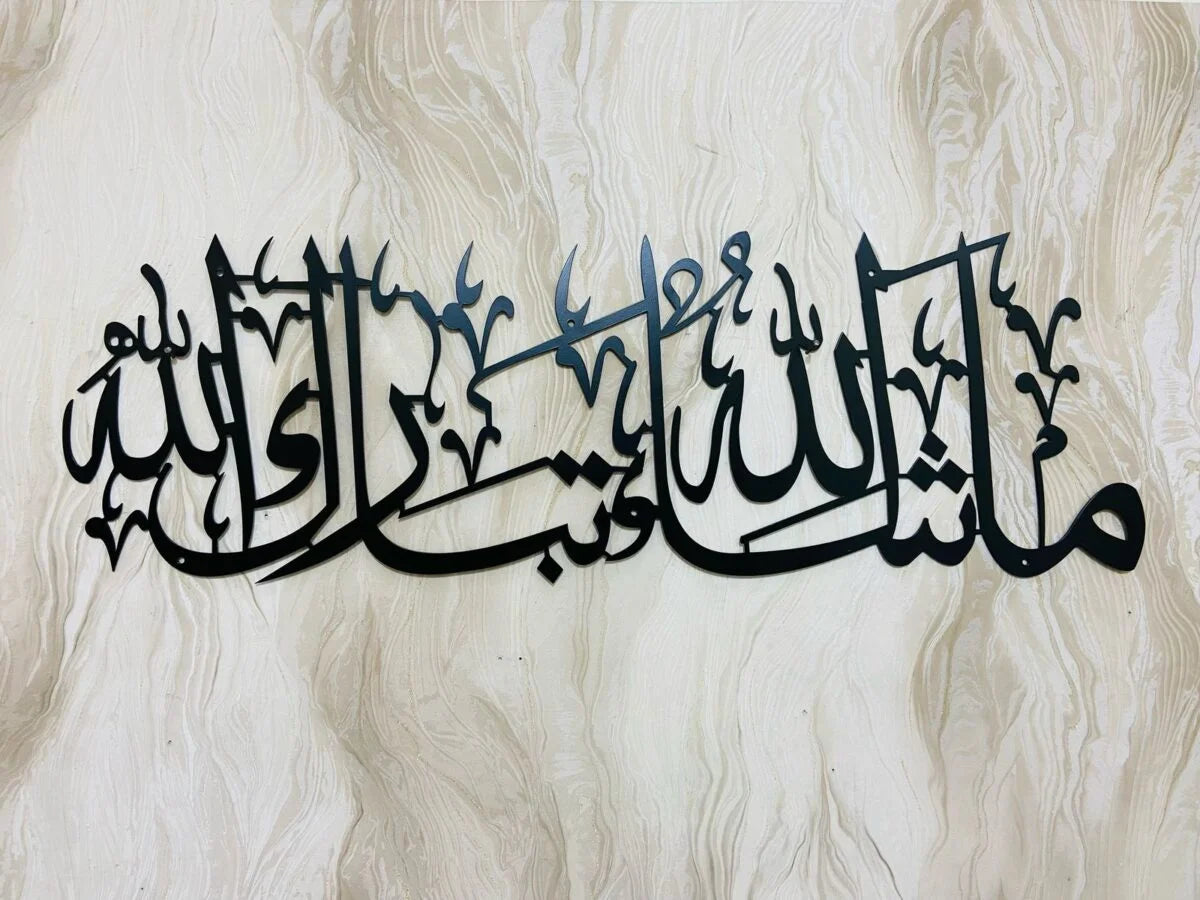 ما شاء الله و تبارك الله